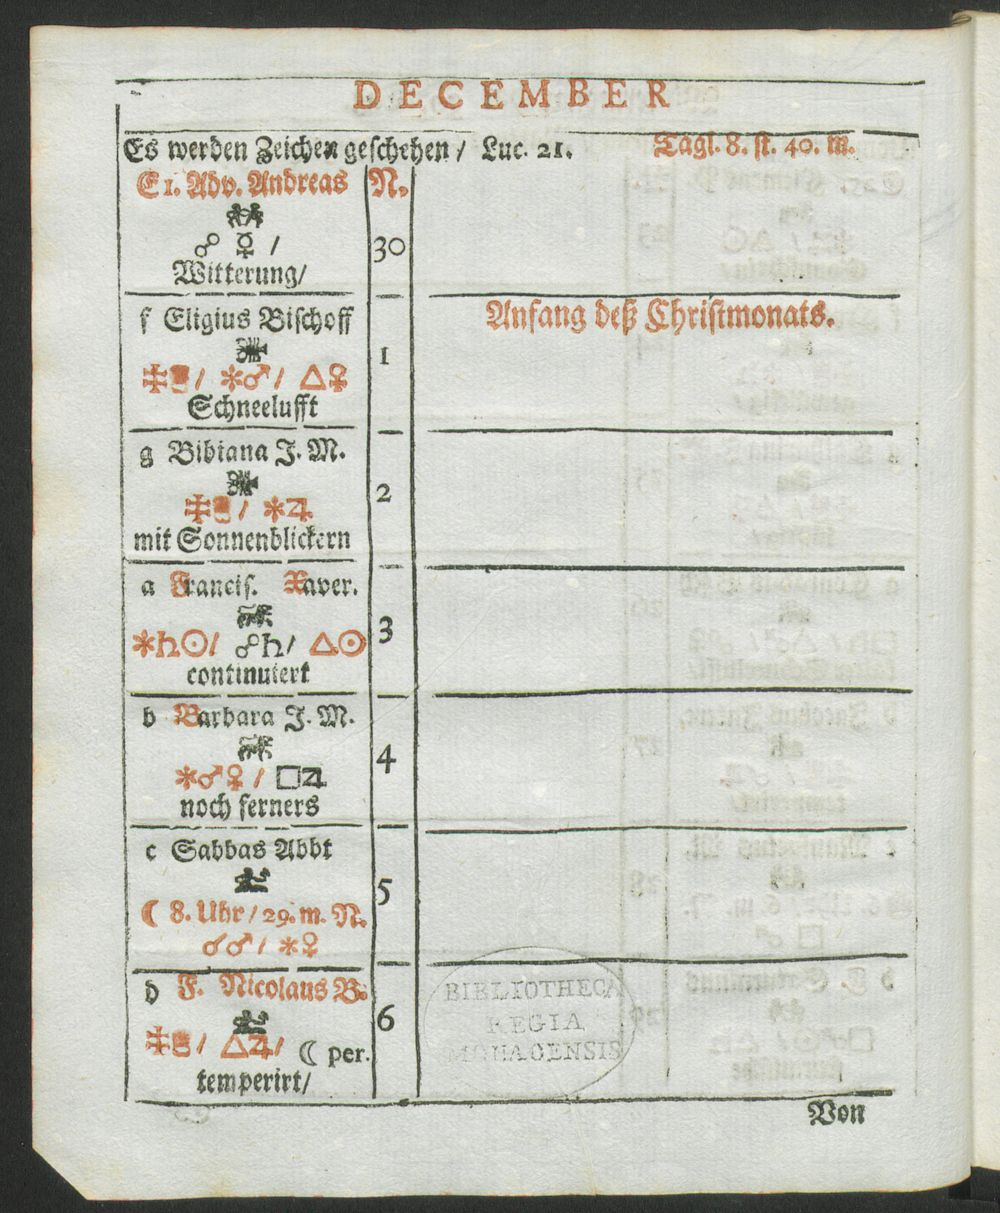 DECEMBER
Es werden Zeichen geschehen / Luc. 21. Tagl. 8. st. 40. m.
E 1. Adv. Andreas N.
☍ ☿ / 30
Witterung/
f Eligius Bischoff Anfang deß Christmonats.
1
/ ✻♂/ △♀
Schneelufft
g Bibiana J. M.
2
/ ✻♃
mit Sonnenblickern
a Francis. Xaver.
3
✻♄☉/ ☍♄/ △☉
continuiert
b Barbara J. M.
4
✻♂♀/ □♃
noch ferners
c Sabbas Abbt
5
☾ 8. Uhr / 29. m. N.
☌♂/ ✻♀
d F. Nicolaus B.
6
/ △♃/ ☾ per.
temperirt/
Von
BIBLIOTHECA
REGIA
MONACENSIS